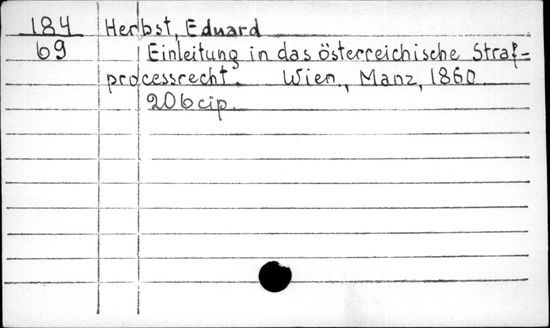 184 Herbst, Eduard
69 Einleitung in das österreichische Straf-
processrecht. Wien, Manz, 1860.
206 cip.